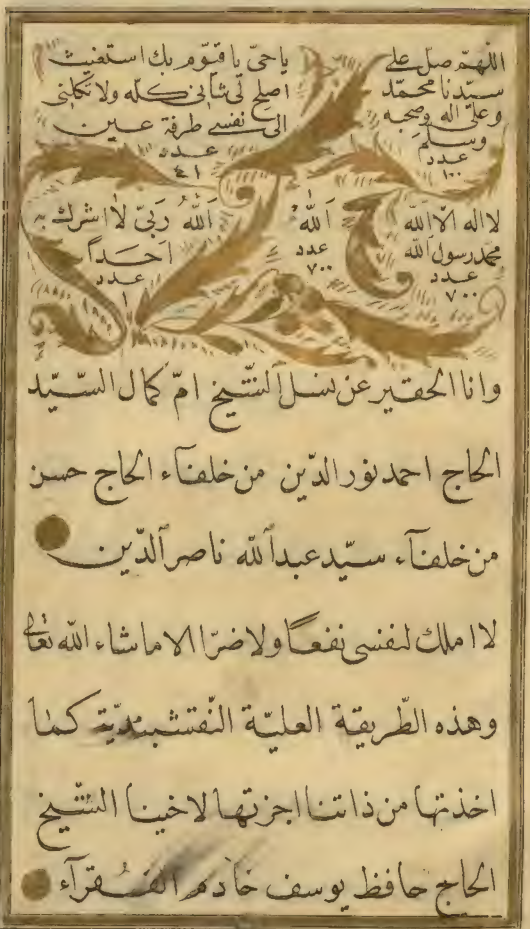 اللهم صل على
سيدنا محمد
وعلى اله وصحبه
وسلم
عدد
١٠٠
ياحي يا قيوم بك استغيث
اصلح لي شأني كله ولا تكلني
الى نفسي طرفة عين
عدد
٤١
لا اله الا الله
محمد رسول الله
عدد
٧٠٠
الله
عدد
٧٠٠
الله ربي لا اشرك به
احداً
عدد
١
وانا الحقير عن نسل الشيخ امّ كمال السّيّد
الحاج احمد نور الدّين من خلفآء الحاج حسن
من خلفآء سيّد عبد الله ناصر الدّين
لا املك لنفسى نفعاً ولا ضرّا الا ماشاء الله تعالى
وهذه الطّريقة العليّة النّقشبنديّة كما
اخذتها من ذاتنا اجزتها لاخينا الشّيخ
الحاج حافظ يوسف خادم الفقرآء